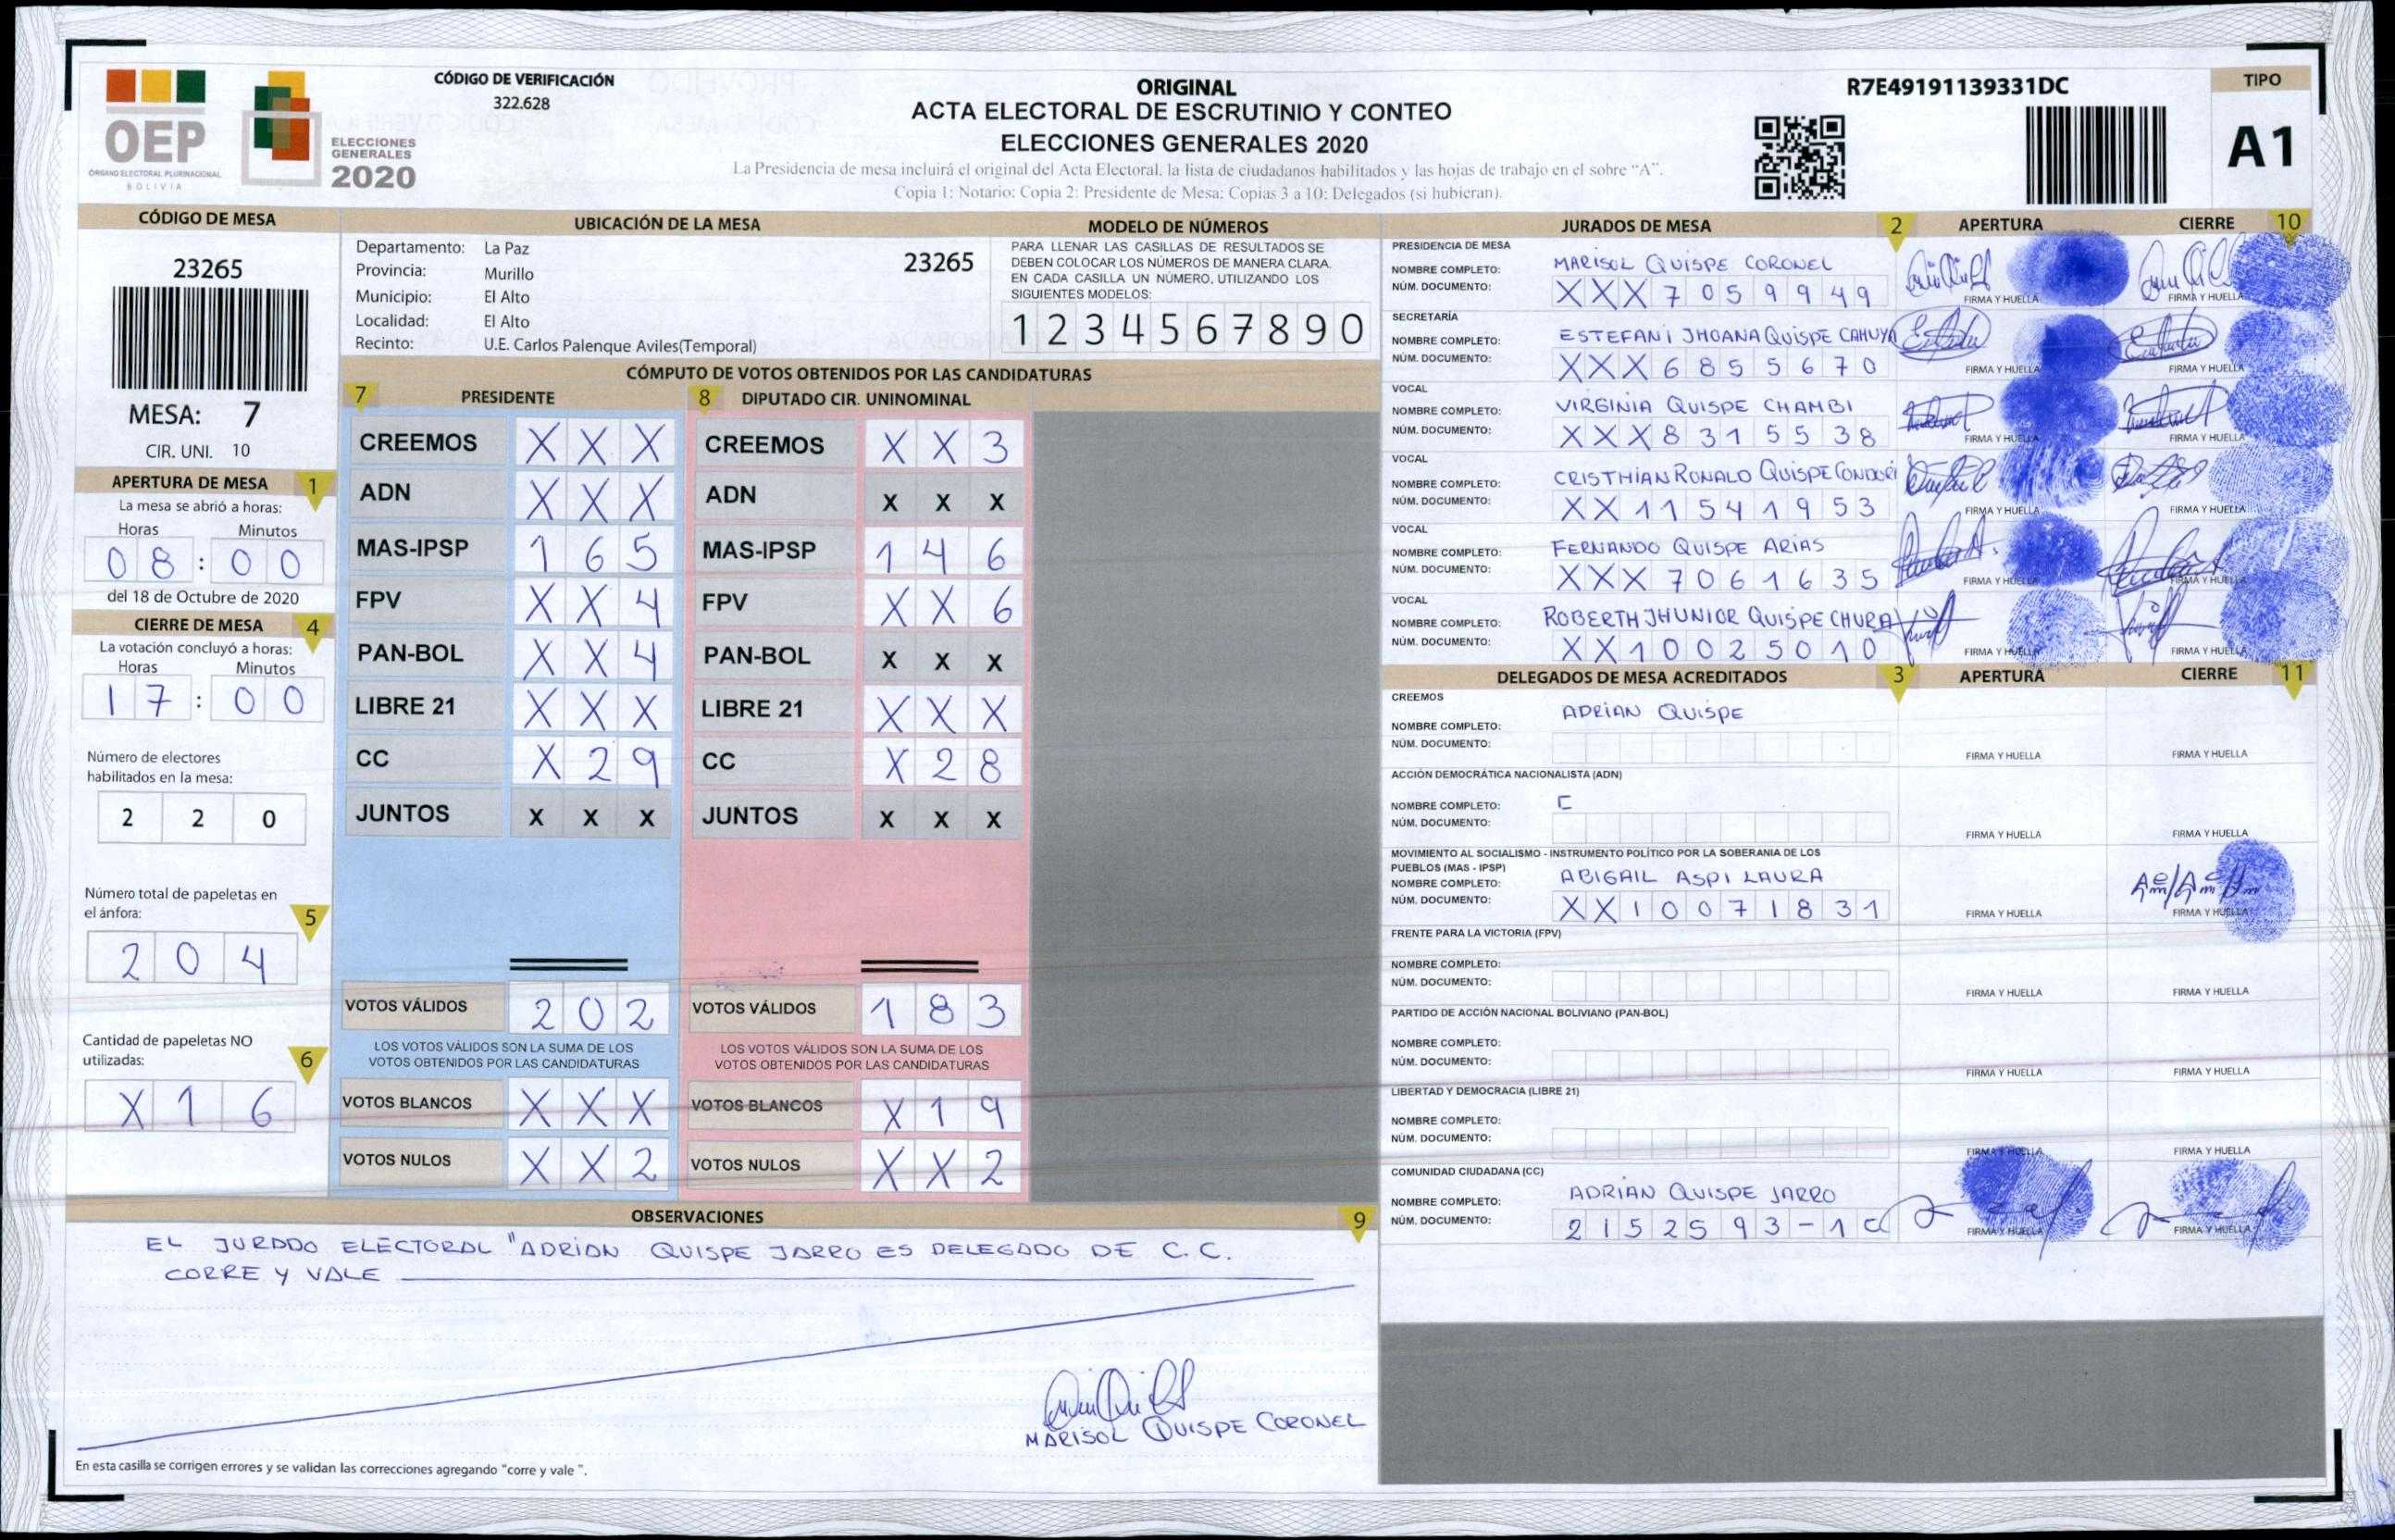 OEP
ÓRGANO ELECTORAL PLURINACIONAL
BOLIVIA
ELECCIONES
GENERALES
2020
CÓDIGO DE VERIFICACIÓN
322.628
ORIGINAL
ACTA ELECTORAL DE ESCRUTINIO Y CONTEO
ELECCIONES GENERALES 2020
La Presidencia de mesa incluirá el original del Acta Electoral, la lista de ciudadanos habilitados y las hojas de trabajo en el sobre "A".
Copia 1: Notario; Copia 2: Presidente de Mesa; Copias 3 a 10: Delegados (si hubieran).
R7E49191139331DC
TIPO
A1
CÓDIGO DE MESA
23265
MESA: 7
CIR. UNI. 10
APERTURA DE MESA 1
La mesa se abrió a horas:
Horas Minutos
0 8 : 0 0
del 18 de Octubre de 2020
CIERRE DE MESA 4
La votación concluyó a horas:
Horas Minutos
1 7 : 0 0
Número de electores
habilitados en la mesa:
2 2 0
Número total de papeletas en
el ánfora: 5
2 0 4
Cantidad de papeletas NO
utilizadas: 6
X 1 6
UBICACIÓN DE LA MESA
Departamento: La Paz 23265
Provincia: Murillo
Municipio: El Alto
Localidad: El Alto
Recinto: U.E. Carlos Palenque Aviles(Temporal)
MODELO DE NÚMEROS
PARA LLENAR LAS CASILLAS DE RESULTADOS SE
DEBEN COLOCAR LOS NÚMEROS DE MANERA CLARA.
EN CADA CASILLA UN NÚMERO, UTILIZANDO LOS
SIGUIENTES MODELOS:
1 2 3 4 5 6 7 8 9 0
CÓMPUTO DE VOTOS OBTENIDOS POR LAS CANDIDATURAS
7 PRESIDENTE 8 DIPUTADO CIR. UNINOMINAL
CREEMOS X X X CREEMOS X X 3
ADN X X X ADN X X X
MAS-IPSP 1 6 5 MAS-IPSP 1 4 6
FPV X X 4 FPV X X 6
PAN-BOL X X 4 PAN-BOL X X X
LIBRE 21 X X X LIBRE 21 X X X
CC X 2 9 CC X 2 8
JUNTOS X X X JUNTOS X X X
VOTOS VÁLIDOS 2 0 2 VOTOS VÁLIDOS 1 8 3
LOS VOTOS VÁLIDOS SON LA SUMA DE LOS LOS VOTOS VÁLIDOS SON LA SUMA DE LOS
VOTOS OBTENIDOS POR LAS CANDIDATURAS VOTOS OBTENIDOS POR LAS CANDIDATURAS
VOTOS BLANCOS X X X VOTOS BLANCOS X 1 9
VOTOS NULOS X X 2 VOTOS NULOS X X 2
OBSERVACIONES 9
EL JURADO ELECTORAL "ADRIAN QUISPE JARRO ES DELEGADO DE C.C.
CORRE Y VALE
MARISOL QUISPE CORONEL
En esta casilla se corrigen errores y se validan las correcciones agregando "corre y vale ".
JURADOS DE MESA 2 APERTURA CIERRE 10
PRESIDENCIA DE MESA
NOMBRE COMPLETO: MARISOL QUISPE CORONEL
NÚM. DOCUMENTO: X X X 7 0 5 9 9 4 9 FIRMA Y HUELLA FIRMA Y HUELLA
SECRETARÍA
NOMBRE COMPLETO: ESTEFANI JHOANA QUISPE CAHUYA
NÚM. DOCUMENTO: X X X 6 8 5 5 6 7 0 FIRMA Y HUELLA FIRMA Y HUELLA
VOCAL
NOMBRE COMPLETO: VIRGINIA QUISPE CHAMBI
NÚM. DOCUMENTO: X X X 8 3 1 5 5 3 8 FIRMA Y HUELLA FIRMA Y HUELLA
VOCAL
NOMBRE COMPLETO: CRISTHIAN RONALO QUISPE CONDORI
NÚM. DOCUMENTO: X X 1 1 5 4 1 9 5 3 FIRMA Y HUELLA FIRMA Y HUELLA
VOCAL
NOMBRE COMPLETO: FERNANDO QUISPE ARIAS
NÚM. DOCUMENTO: X X X 7 0 6 1 6 3 5 FIRMA Y HUELLA FIRMA Y HUELLA
VOCAL
NOMBRE COMPLETO: ROBERTH JHUNIOR QUISPE CHURA
NÚM. DOCUMENTO: X X 1 0 0 2 5 0 1 0 FIRMA Y HUELLA FIRMA Y HUELLA
DELEGADOS DE MESA ACREDITADOS 3 APERTURA CIERRE 11
CREEMOS
NOMBRE COMPLETO: ADRIAN QUISPE
NÚM. DOCUMENTO: FIRMA Y HUELLA FIRMA Y HUELLA
ACCIÓN DEMOCRÁTICA NACIONALISTA (ADN)
NOMBRE COMPLETO: C
NÚM. DOCUMENTO: FIRMA Y HUELLA FIRMA Y HUELLA
MOVIMIENTO AL SOCIALISMO - INSTRUMENTO POLÍTICO POR LA SOBERANIA DE LOS
PUEBLOS (MAS - IPSP)
NOMBRE COMPLETO: ABIGAIL ASPI LAURA
NÚM. DOCUMENTO: X X 1 0 0 7 1 8 3 1 FIRMA Y HUELLA FIRMA Y HUELLA
FRENTE PARA LA VICTORIA (FPV)
NOMBRE COMPLETO:
NÚM. DOCUMENTO: FIRMA Y HUELLA FIRMA Y HUELLA
PARTIDO DE ACCIÓN NACIONAL BOLIVIANO (PAN-BOL)
NOMBRE COMPLETO:
NÚM. DOCUMENTO: FIRMA Y HUELLA FIRMA Y HUELLA
LIBERTAD Y DEMOCRACIA (LIBRE 21)
NOMBRE COMPLETO:
NÚM. DOCUMENTO: FIRMA Y HUELLA FIRMA Y HUELLA
COMUNIDAD CIUDADANA (CC)
NOMBRE COMPLETO: ADRIAN QUISPE JARRO
NÚM. DOCUMENTO: 2 1 5 2 5 9 3 - 1 C FIRMA Y HUELLA FIRMA Y HUELLA